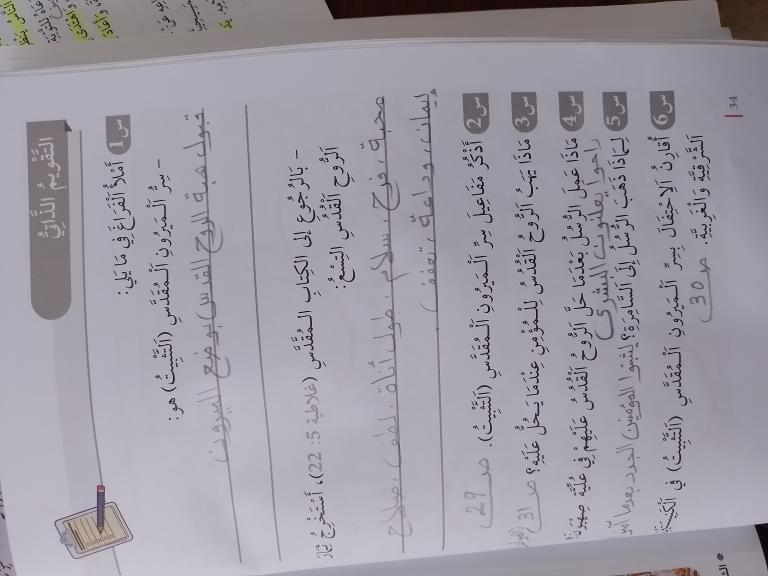 التَّقْوِيمُ الذَّاتِيُّ
س1 أَمْلَأُ الْفَرَاغَ فِي مَا يَلِي:
- سِرُّ الْمَيرُونِ الْمُقَدَّسِ (التَّثْبِيتُ) هو:
قبول هبة الروح القدس بوضع الميرون
- بِالرُّجُوعِ إِلَى الْكِتَابِ الْمُقَدَّسِ (غلاطية 5: 22)، أَسْتَخْرِجُ ثِمَارَ
الرُّوحِ الْقُدُسِ التِّسْعُ:
محبة، فرح، سلام، طول أناة، لطف، صلاح
إيمان، وداعة، تعفف.
س2 أَذْكُرُ مَفَاعِيلَ سِرِّ الْمَيرُونِ الْمُقَدَّسِ (التَّثْبِيتُ). ص 29
س3 مَاذَا يَهَبُ الرُّوحُ الْقُدُسُ لِلْمُؤْمِنِ عِنْدَمَا يَحُلُّ عَلَيْهِ؟ ص 31
س4 مَاذَا عَمِلَ الرُّسُلُ بَعْدَمَا حَلَّ الرُّوحُ الْقُدُسُ عَلَيْهِمْ فِي عُلِّيَّةِ صِهْيَوْنَ؟
راحوا يعلنون البشرى
س5 لِمَاذَا ذَهَبَ الرُّسُلُ إِلَى السَّامِرَةِ؟ ليثبتوا المؤمنين الجدد بعدما
س6 أُقَارِنُ الِاحْتِفَالَ بِسِرِّ الْمَيرُونِ الْمُقَدَّسِ (التَّثْبِيتُ) فِي الْكَنِيسَةِ:
الشَّرْقِيَّةِ وَالْغَرْبِيَّةِ. ص 30
34